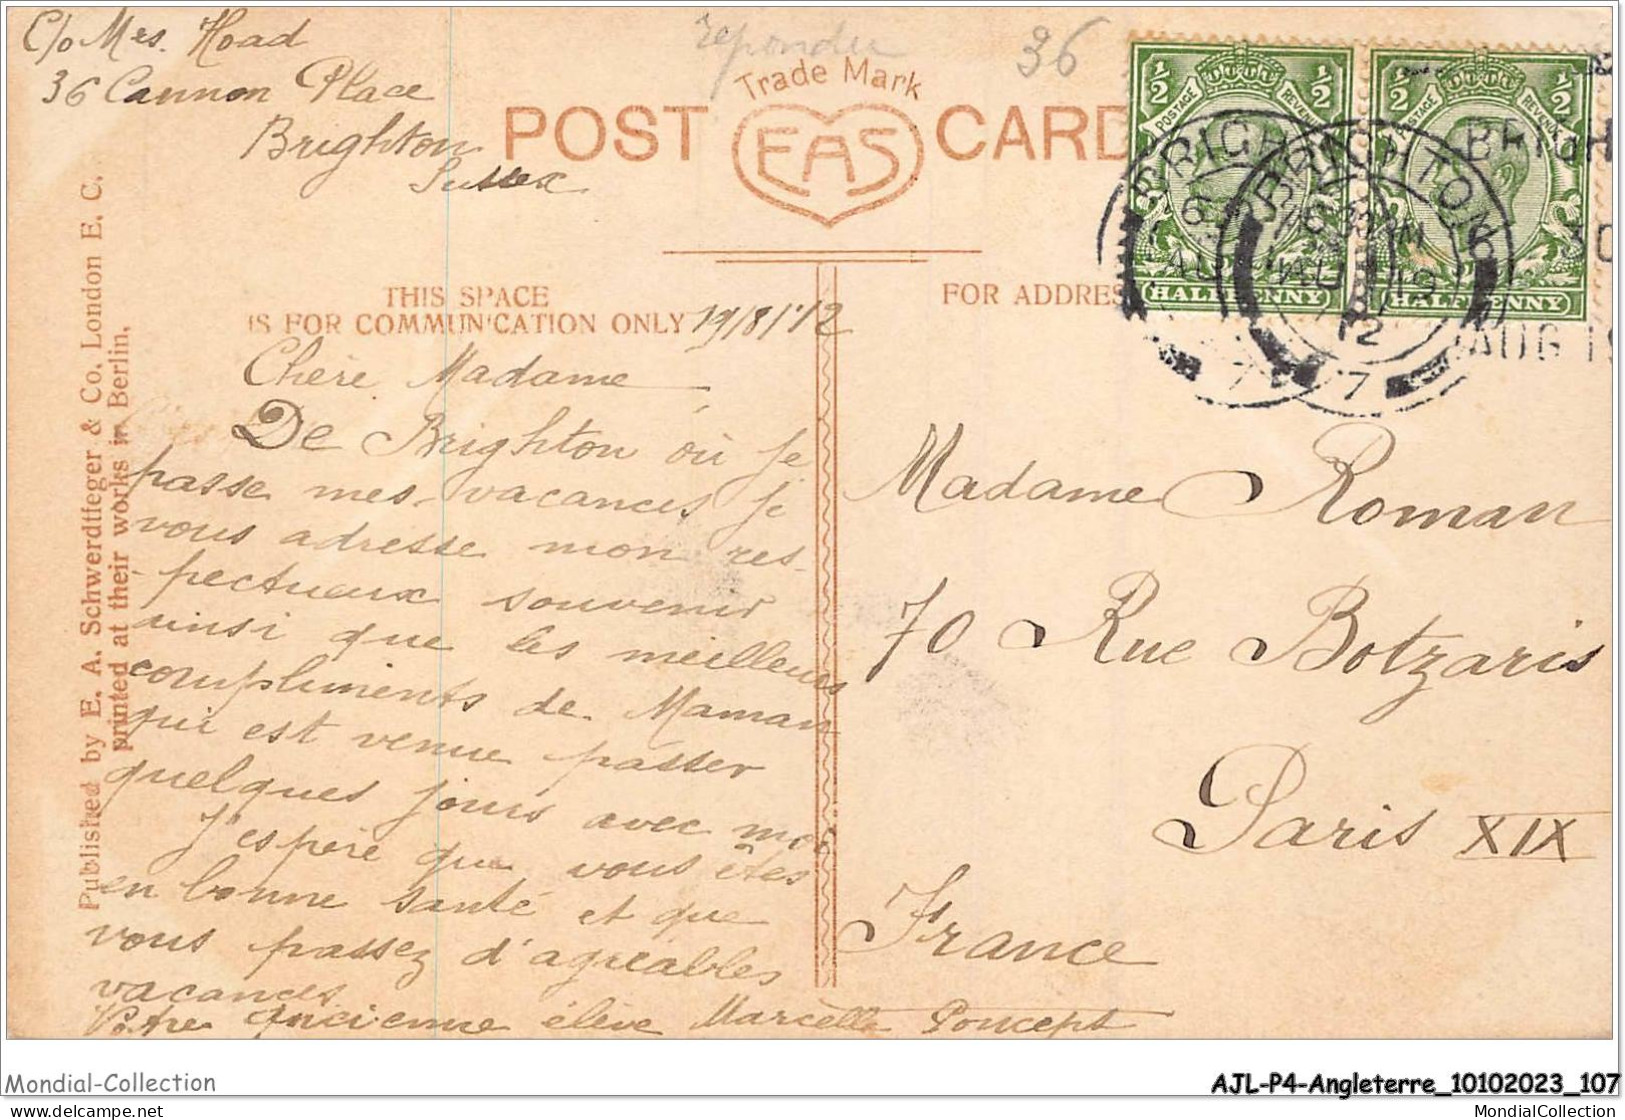 C/o Mrs. Hoad
36 Cannon Place
Brighton
Sussex
repondu
36
Trade Mark
POST EAS CARD
½ ½
POSTAGE REVENUE
HALFPENNY
½ ½
POSTAGE REVENUE
HALFPENNY
BRIGHTON
AU 19
12
7
BRIGH
AUG 19
THIS SPACE
IS FOR COMMUNICATION ONLY
FOR ADDRES
19/8/12
Published by E. A. Schwerdtfeger & Co. London E. C.
printed at their works in Berlin.
Chère Madame
De Brighton où je
passe mes vacances je
vous adresse mon res-
pectueux souvenir
ainsi que les meilleurs
compliments de Maman
qui est venue passer
quelques jours avec moi
J'espère que vous êtes
en bonne santé et que
vous passez d'agréables
vacances
Votre ancienne élève Marcelle Poncept
Madame Roman
70 Rue Botzaris
Paris XIX
France
Mondial-Collection
AJL-P4-Angleterre_10102023_107
www.delcampe.net
MondialCollection